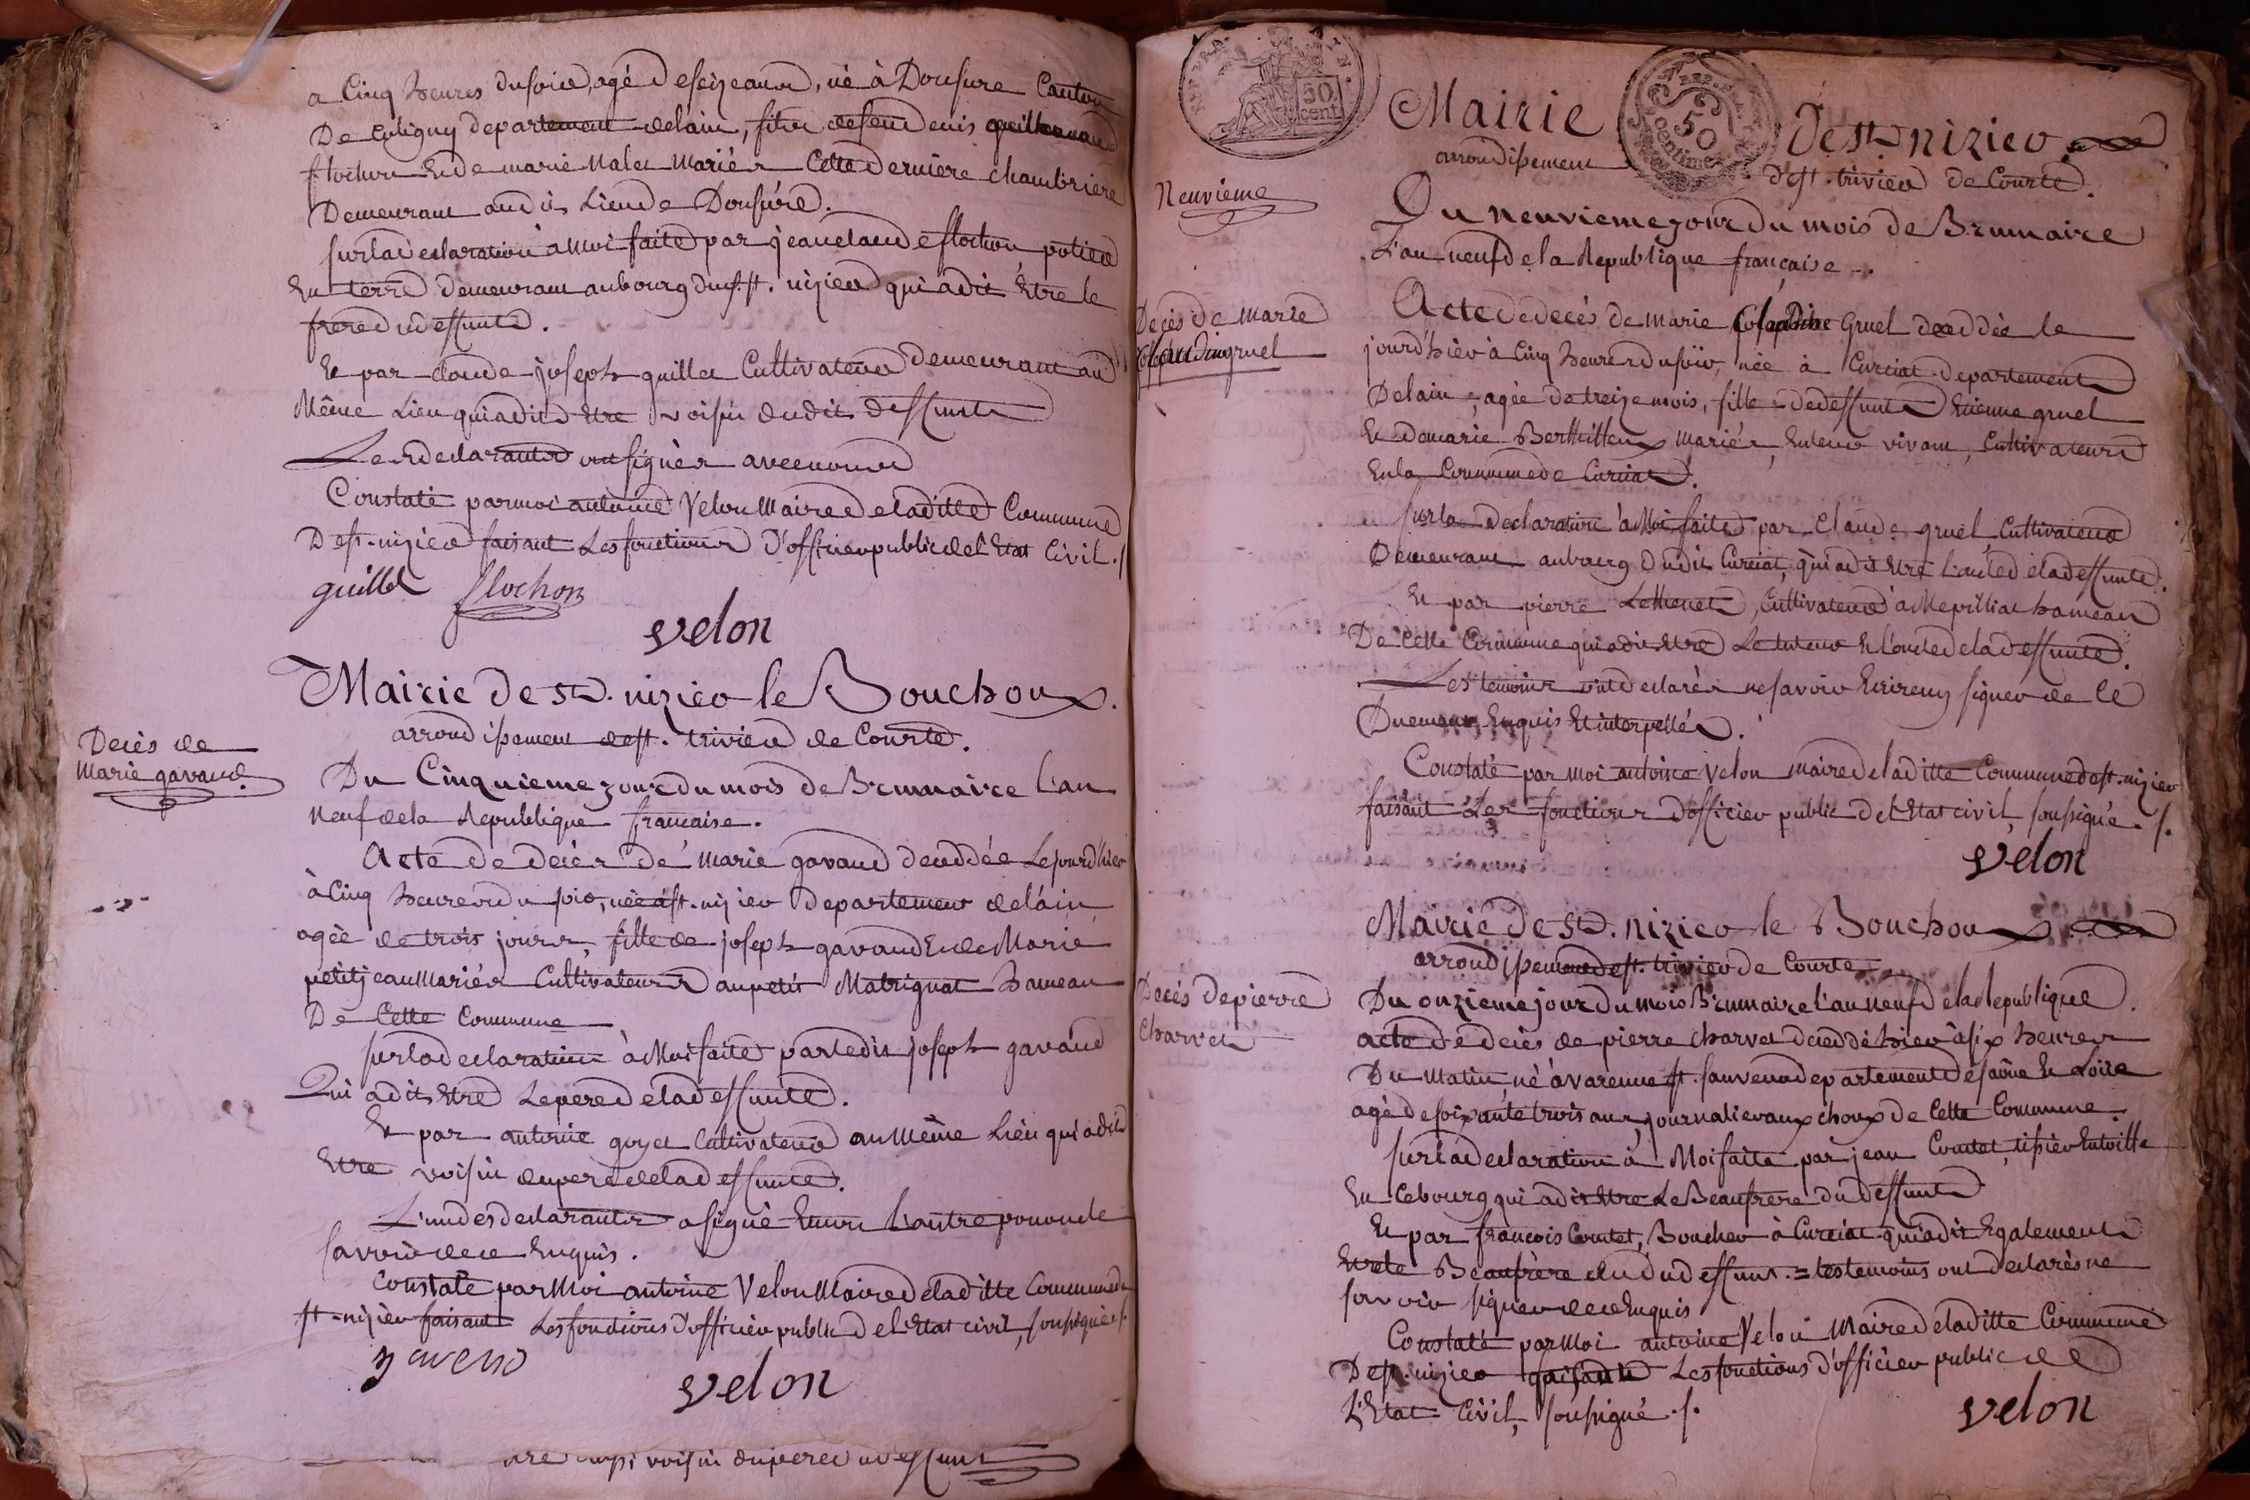 a Cinq heures du soir, agé de seize ans, né à Donsure Canton
De Coligny departement de lain, fils de feu denis
flochon et de marie Nalet Mariés Cette derniere chambriere
Demeurant au dit Lieu de Donsure.
sur la declaration a moi faite par jean claude flochon, potier
En terre demeurant au bourg du st. nizier qui a dit Etre le
frere du deffunt.
Et par claude joseph guillet Cultivateur demeurant au
Même Lieu qui a dit Etre voisin du dit deffunt
Les declarants ont signés avec nous
Constaté par moi antoine Velon Maire de la ditte Commune
De st. nizier faisant Les fonctions D'officier public de l'Etat Civil ./.
guillet flochon
velon
Mairie De St. nizier le Bouchoux.
arrondissement de st. trivier de Courte.
Decès de
Marie gavaud
Du Cinquieme jour du mois de Brumaire l'an
Neuf de la Republique française.
Acte de decès de Marie gavaud decedée Le jour d'hier
à Cinq heures du soir, née à st. nizier Departement de l'ain
agée de trois jours, fille de joseph gavaud Et de Marie
petitjean Mariés Cultivateurs au petit Matrignat hameau
De Cette Commune
sur la declaration à Moi faite par le dit joseph gavaud
Qui a dit Etre Le pere de la deffunte.
Et par antoine goyet Cultivateur au Même Lieu qui a dit
Etre voisin du pere de la deffunte.
L'un des declarants a signé L'autre pour ne le
savoir de ce Enquis.
Constaté par Moi antoine Velon Maire de la ditte Commune de
st. nizier faisant Les fonctions D'officier public de l'Etat civil, soussigné ./.
gaveno
velon
voisin du pere du deffunt
REP. FRA.
50
cent.
50
Centimes
Mairie De St. nizier
arrondissement De st. trivier de Courte.
Neuvieme
Du Neuvieme jour du mois de Brumaire
L'an neuf de la Republique française.
Decès de Marie
Claudine gruel
Acte de decès de Marie Claudine Gruel decedée le
jour d'hier à Cinq heures du soir, née à Curciat departement
De lain, agée de treize mois, fille de deffunts Etienne gruel
Et de marie Berthillon, Mariés, En leur vivant, Cultivateurs
En la Commune de Curciat.
sur la declaration à Moi faite par Claude gruel, Cultivateur
Demeurant au bourg du dit Curciat, qui a dit Etre L'oncle de la deffunte.
Et par pierre Lethenet, Cultivateur à Mepilliat hameau
De Cette Commune qui a dit Etre Le tuteur Et l'oncle de la deffunte.
Les temoins ont declarés ne savoir Ecrire ny signer de ce
Duement Enquis Et interpellés.
Constaté par moi antoine Velon maire de la ditte Commune de st. nizier
faisant Les fonctions d'officier public de l'Etat civil, soussigné ./.
velon
Mairie De St. nizier le Bouchoux
arrondissement de st. trivier de Courte
Decès de pierre
Charvet
Du onzieme jour du mois Brumaire l'an neuf de la Republique.
acte de decès de pierre Charvet decedé hier à six heures
Du Matin, né à varenne st. sauveur departement de saône Et Loire
agé de soixante trois ans, journalier aux choux de Cette Commune.
sur la declaration à Moi faite par jean Coutet, tissier En toille
En Ce bourg qui a dit Etre Le Beaufrere du deffunt
Et par françois Coutet, Boucher à Curciat qui a dit Egalement
Etre le Beaufrère du deffunt. = les temoins ont declarés ne
savoir signer de ce Enquis
Constaté par Moi antoine Velon Maire de la ditte Commune
De st. nizier faisant Les fonctions d'officier public de
L'Etat Civil, soussigné ./.
velon